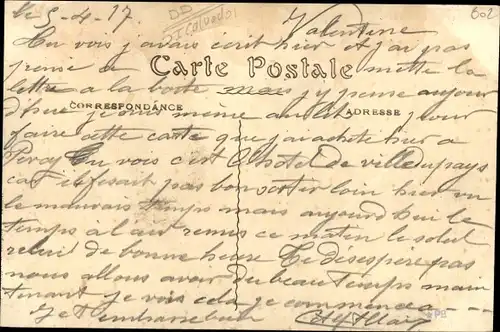 le 5-4-17 Valentine
DD
DI Calvados
602
Tu vois j'avais écrit hier et j'ai pas
pensé a mettre la
Carte Postale
lettre a la boîte mais j'y pense aujour
CORRESPONDANCE ADRESSE
d'hui je suis même au lit pour
faire cette carte que j'ai acheté hier a
Percy Tu vois c'est l'hotel de ville du pays
car il fesait pas bon sortir loin hier vu
le mauvais temps mais aujourd'hui le
temps à l'air remis ce matin le soleil
reluit de bonne heure Je desespere pas
nous allons avoir du beau temps main
tenant je vois cela je commence a
Je t'embrasse bien